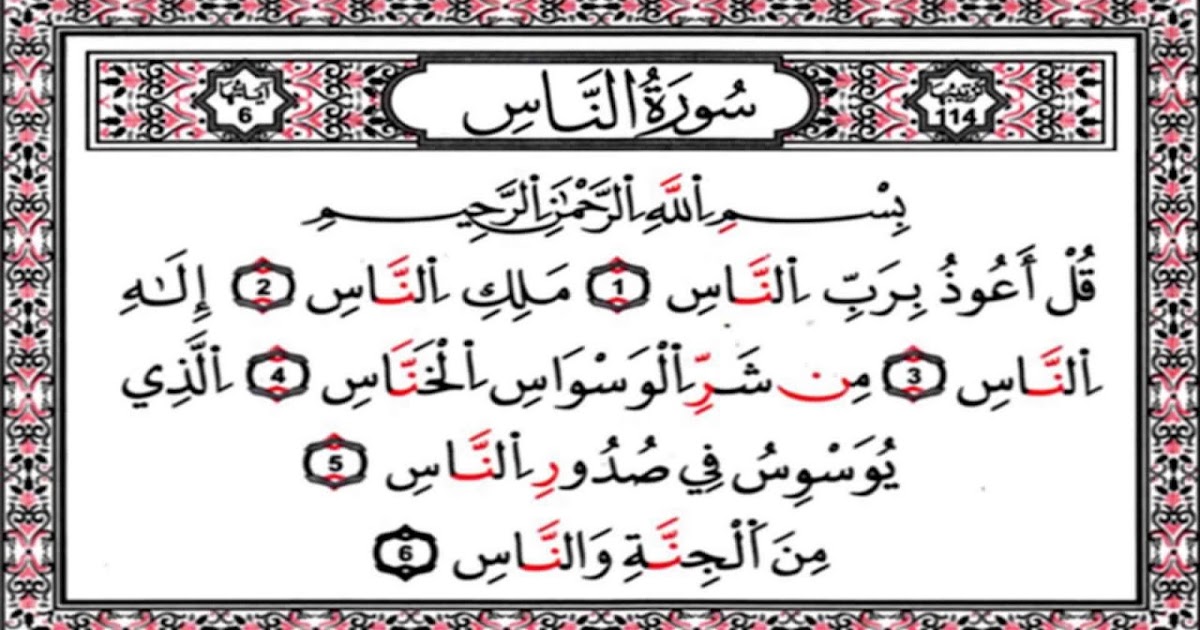 ترتيبها 114
سُورَةُ النَّاسِ
آياتها 6
بِسْمِ اِللَّهِ اِلرَّحْمَٰنِ اِلرَّحِيمِ
قُلْ أَعُوذُ بِرَبِّ اِلنَّاسِ 1 مَلِكِ اِلنَّاسِ 2 إِلَـٰهِ
اِلنَّاسِ 3 مِن شَرِّ اِلْوَسْوَاسِ اِلْخَنَّاسِ 4 اِلَّذِي
يُوَسْوِسُ فِي صُدُورِ اِلنَّاسِ 5
مِنَ اَلْجِنَّةِ وَالنَّاسِ 6